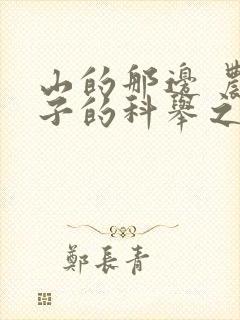 山的那邊 農
子的科舉之
鄭長青